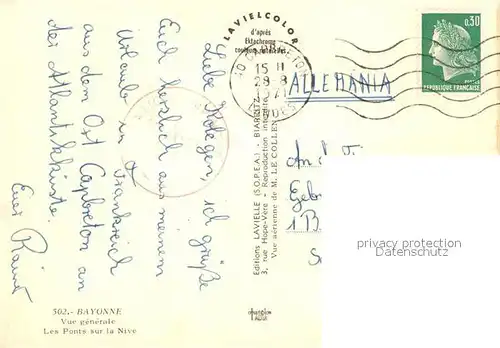 Liebe Kolegen, ich grüße
Euch herzlich aus meinem
Urlaub in Frankreich
aus dem Ort Capbreton an
der Atlantikküste.
Euer
502.- BAYONNE
Vue générale
Les Ponts sur la Nive
LAVIELCOLOR
d'après
Ektachrome
Editions LAVIELLE (S.O.P.E.) - BIARRITZ
3, rue Hope-Vère - Reproduction interdite
Vue aérienne de M. LE COLLEN
15 H
28-8
1971
0,30
REPUBLIQUE FRANÇAISE
ALLEMANIA
An
Geb
1 B
privacy protection
Datenschutz